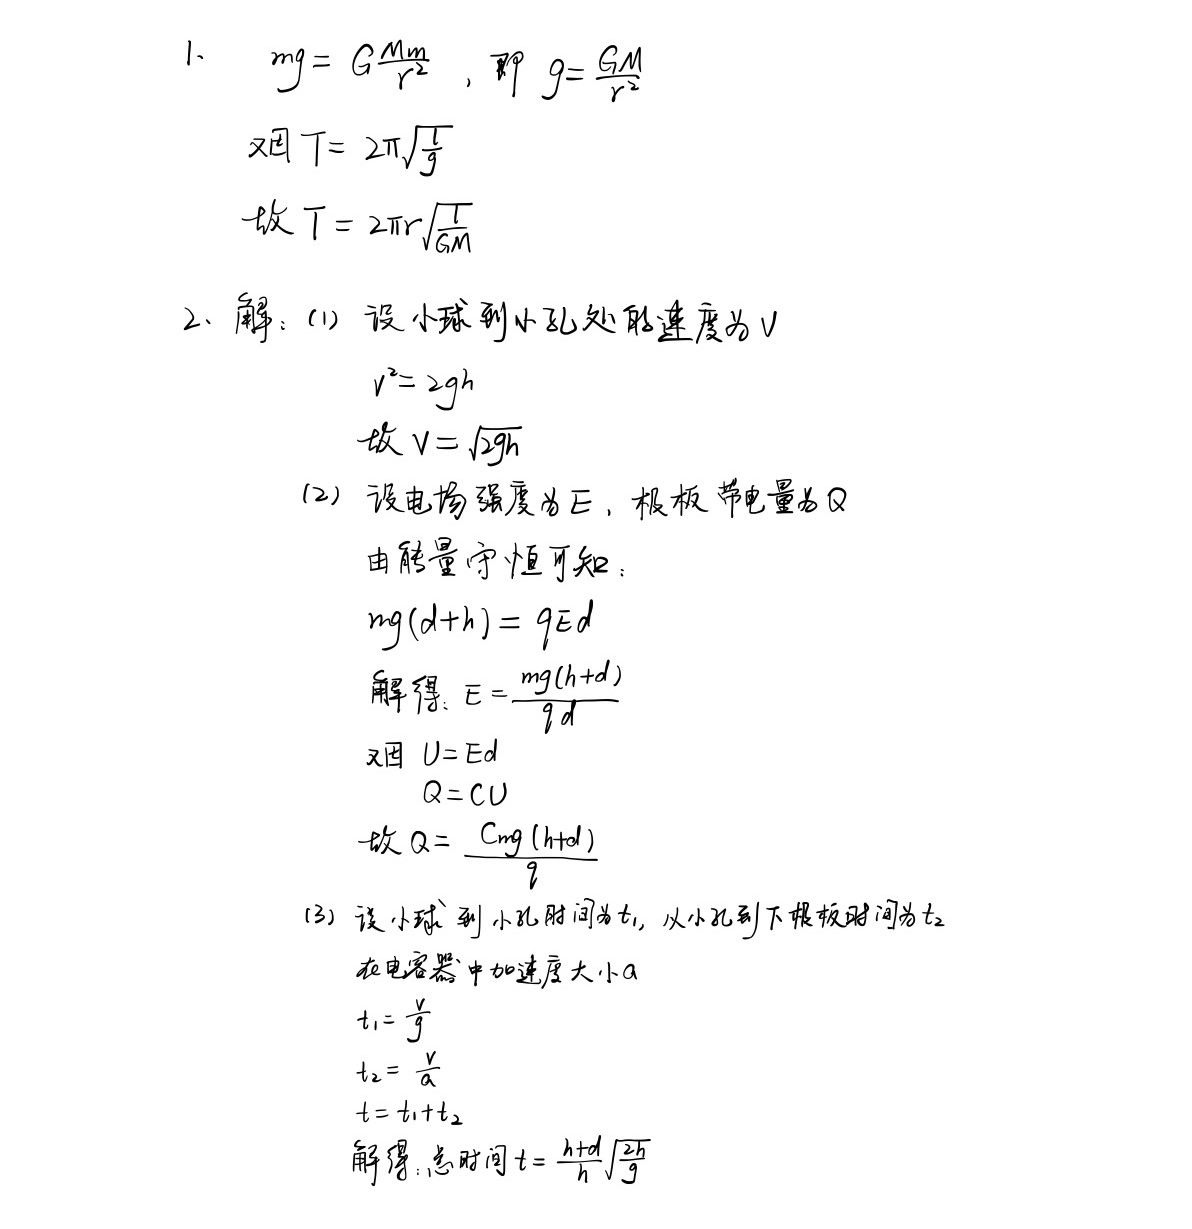 1、 mg = G\frac{Mm}{r^2}, 即 g = \frac{GM}{r^2}
又因 T = 2π\sqrt{\frac{l}{g}}
故 T = 2πr\sqrt{\frac{l}{GM}}
2、解: (1) 设小球到小孔处的速度为V
v^2 = 2gh
故 V = \sqrt{2gh}
(2) 设电场强度为E, 极板带电量为Q
由能量守恒可知:
mg(d+h) = qEd
解得: E = \frac{mg(h+d)}{qd}
又因 U = Ed
Q = CU
故 Q = \frac{Cmg(h+d)}{q}
(3) 设小球到小孔时间为t_1, 从小孔到下极板时间为t_2
在电容器中加速度大小a
t_1 = \frac{v}{g}
t_2 = \frac{v}{a}
t = t_1 + t_2
解得: 总时间 t = \frac{h+d}{h}\sqrt{\frac{2h}{g}}